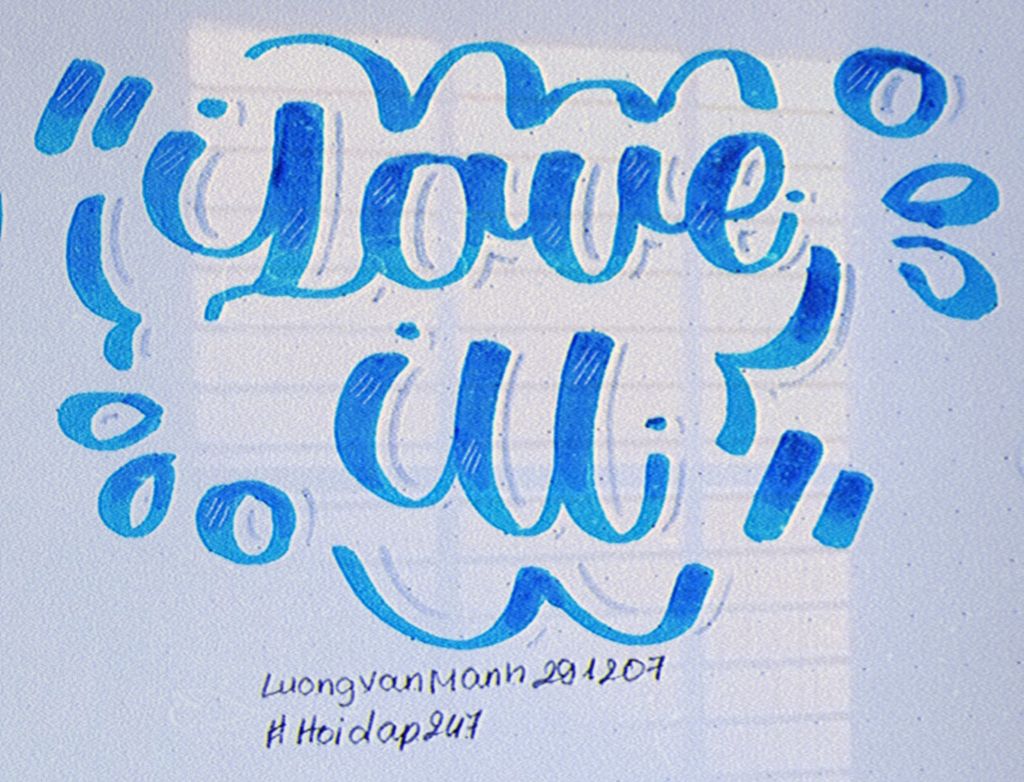 Love
U
LuongvanManh 291207
#Hoidap247